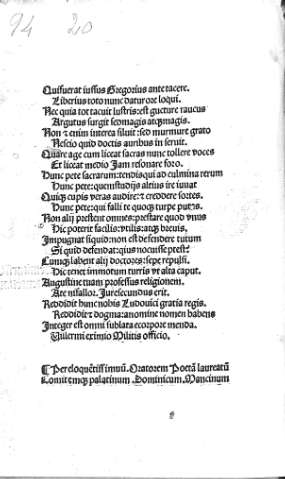 94 20
Qui fuerat iussus Gregorius ante tacere.
Liberius toto nunc datur ore loqui.
Nec quia tot tacuit lustris: est gutture raucus
Argutus surgit seo magis atq; magis.
Non & enim interea siluit: sed murmure grato
Nescio quid doctis auribus inseruit.
Quare age cum liceat sacras nunc tollere voces
Et liceat medio Jam resonare foro.
Hunc pete sacrarum: tendis qui ad culmina rerum
Hunc pete: quem stadijs altius ire iuuat
Quiq; cupis veras audire: & credere sortes.
Hunc pete: qui falli te quoq; turpe putas.
Non alij prestent omnes: prestare quod vnus
Hic poterit facilis: vtilis: atq; breuis.
Impugnat siquid: non est defendere tutum
Si quid defendat: quis nocuisse potest?
Cumq; labent alij doctores: sepe repulsi.
Hic tenet immotum turris vt alta caput.
Augustine tuam professus religionem.
Ate nisfallor. Jure secundus erit.
Reddidit hunc nobis Ludouici gratia regis.
Reddidit & dogma: a nomine nomen habens
Integer est omni sublata ecorpore menda.
Vuilermi eximio Militis officio.
¶ Per eloquētissimuū. Oratorem Poetā laureatū
Comitēmq; palatinum. Dominicum. Mancinum